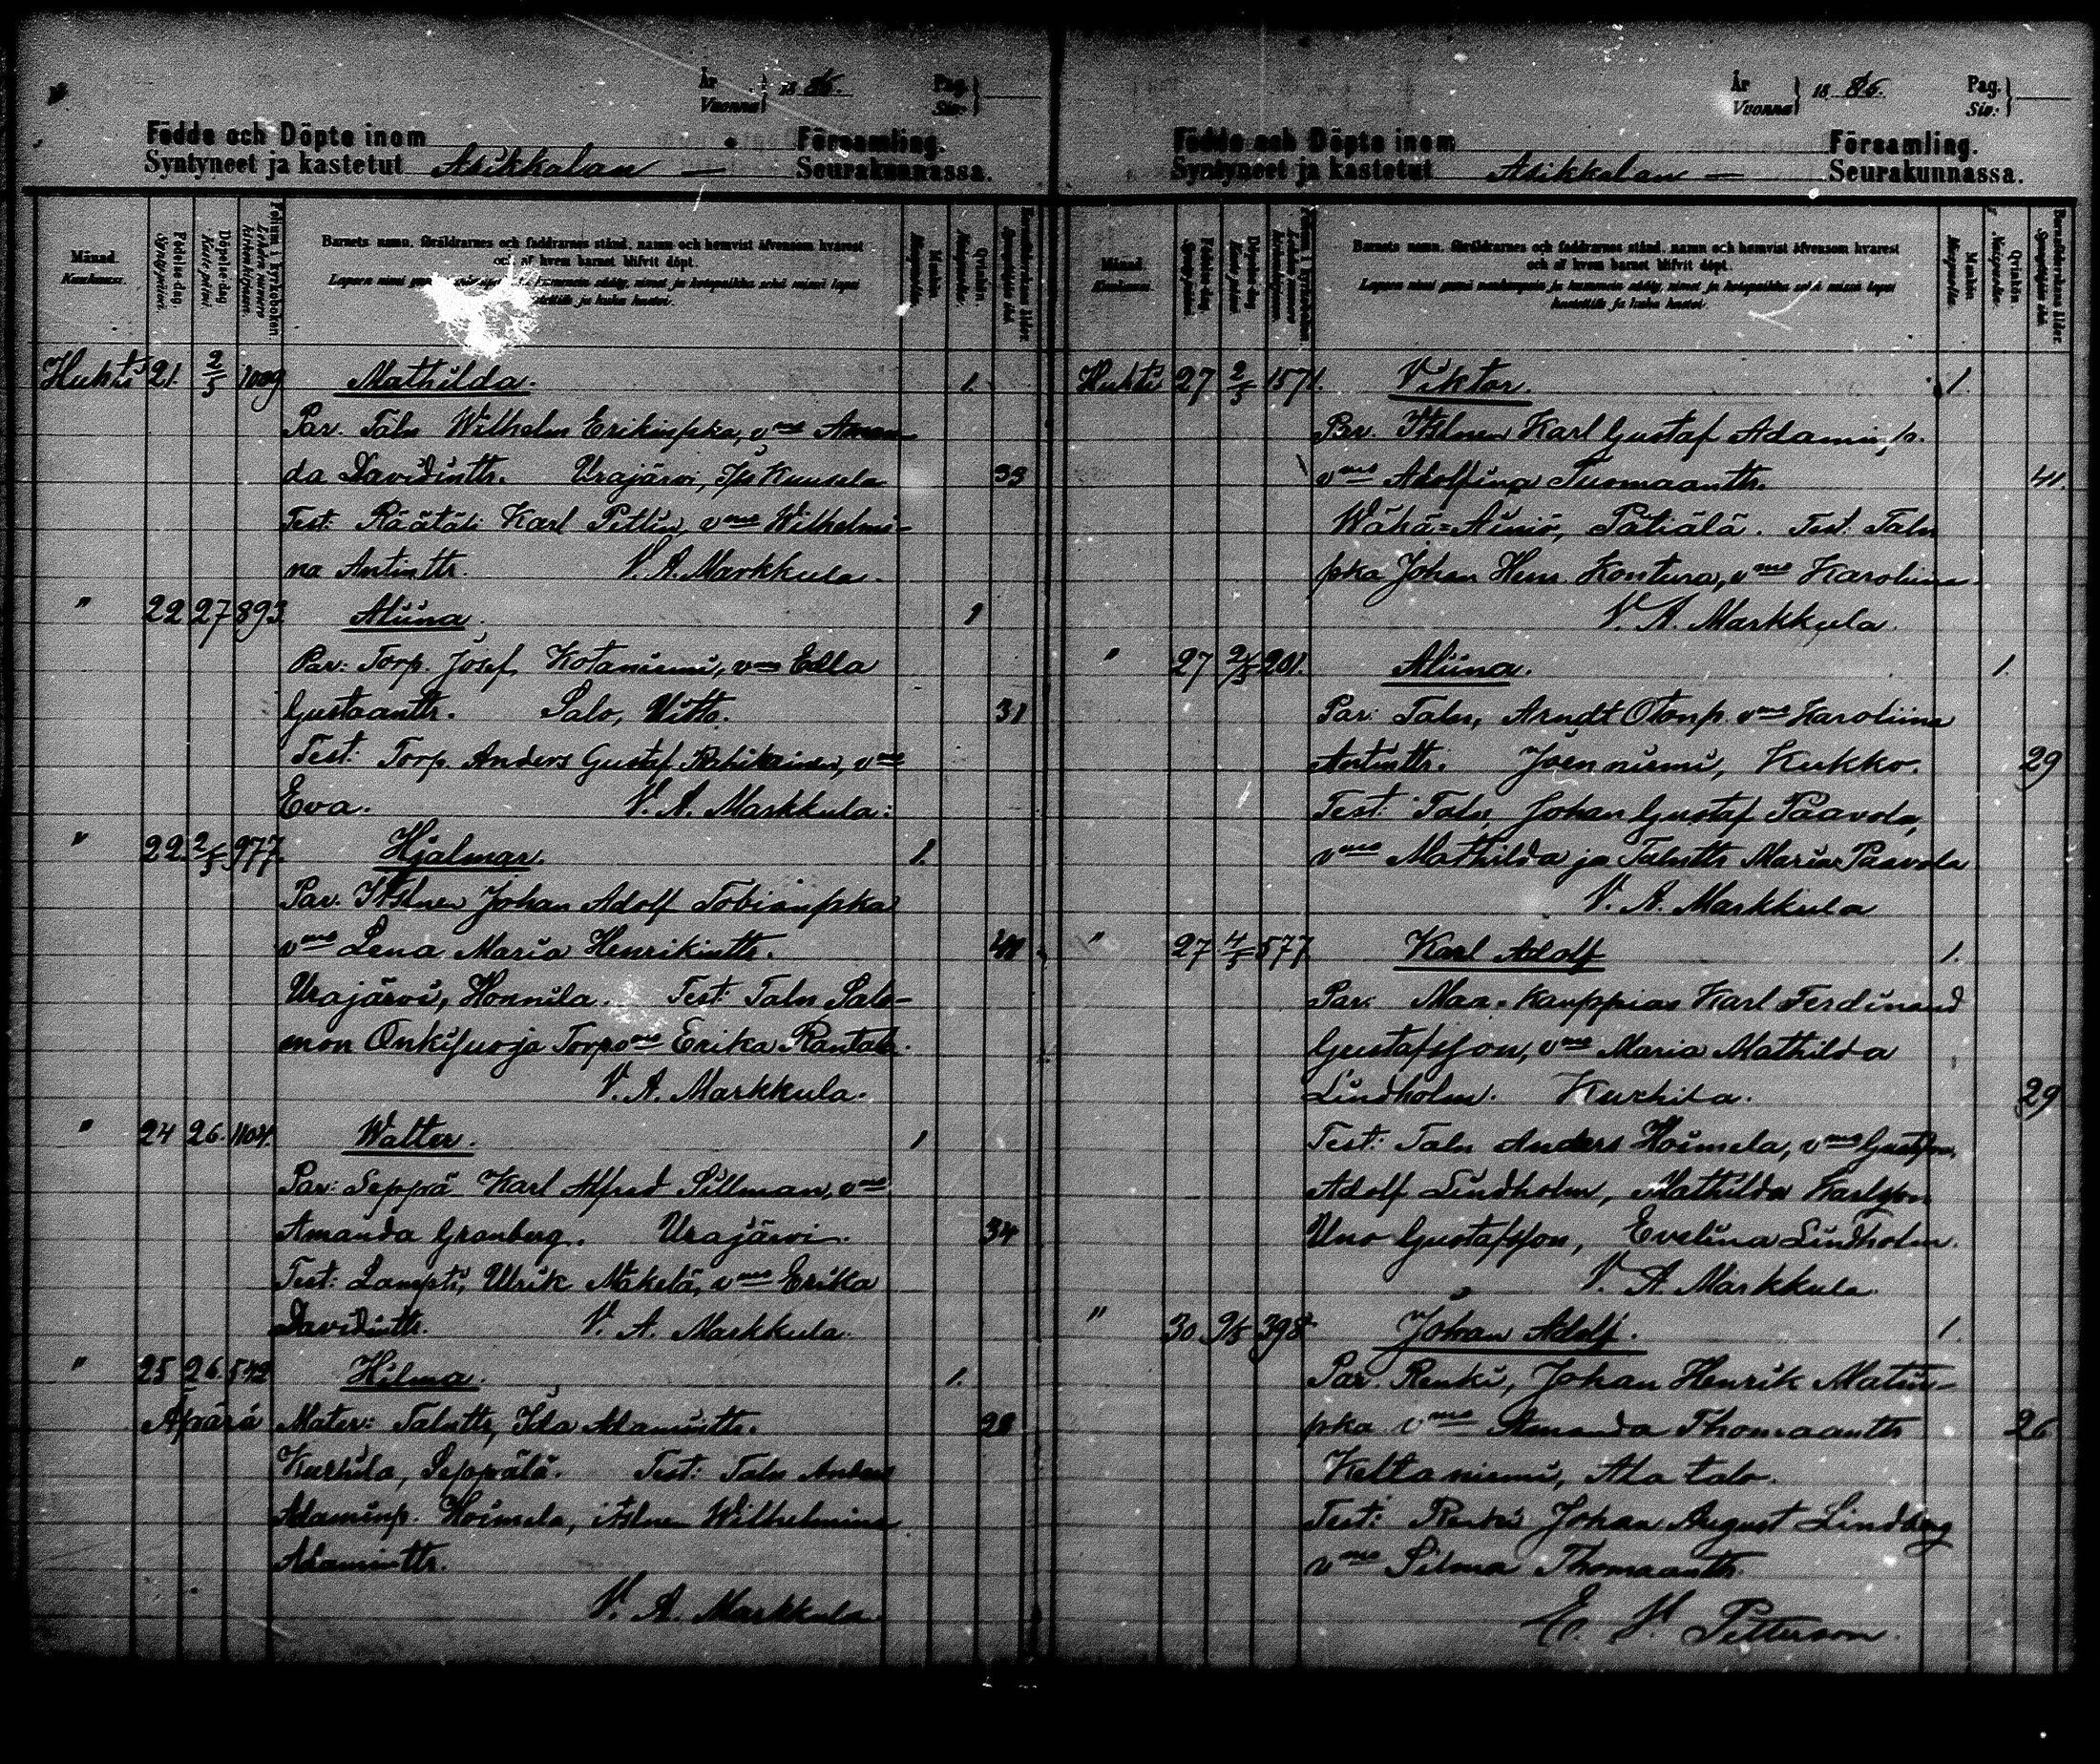 År
Vuonna } 1886.
Pag.
Siv. }
Födde och Döpte inom Församling.
Syntyneet ja kastetut Asikkalan — Seurakunnassa.
Månad.
Kuukausi.
Födelsedag.
Syntypäivä.
Döpelsedag
Kastepäivä
Folium i kyrkoboken.
Lehden numero kirkonkirjassa.
Barnets namn, föräldrarnes och faddrarnes stånd, namn och hemvist äfvensom hvarest
och af hvem barnet blifvit döpt.
Lapsen nimi
ja kuka kastoi.
Mankön.
Miespuolia.
Qvinkön.
Naispuolia.
Huhti 21. 2/5 1009 Mathilda. 1.
Par. Taln Wilhelm Erikinpka, vmo Aman-
da Davidintr. Urajärvi, I/so Kuusela 33
Test: Räätäli Karl Petlin, vmo Wilhelmi-
na Antintr. V. A. Markkula.
" 22 27 893. Aliina. 1
Par: Torp. Josef Kotaniemi, vmo Edla
Gustaantr. Salo, Vitto. 31
Test: Torp. Anders Gustaf, vmo
Eva. V. A. Markkula.
" 22. 2/5 977. Hjalmar. 1.
Par. Itslnen Johan Adolf Tobianpka
vmo Lena Maria Henrikintr. 41
Urajärvi, Honnila. Test: Taln Salo-
mon Onkisuo ja Torp vmo Erika Rantala.
V. A. Markkula.
" 24 26. 1104. Walter. 1
Par: Seppä Karl Alfred Sillman, vmo
Amanda Granberg. Urajärvi. 34
Test: Lampti, Ulrik Mäkelä, vmo Erika
Davidintr. V. A. Markkula.
" 25 26. 542 Hilma. 1.
Äpärä Mater: Talntr, Ida Adamintr. 28
Kurhila, Seppälä. Test: Taln Anders
Adaminp. Hoimela, itslnen Wilhelmina
Adamintr.
V. A. Markkula
År
Vuonna } 1886.
Pag.
Siv. }
Födde och Döpte inom Församling.
Syntyneet ja kastetut Asikkalan — Seurakunnassa.
Månad.
Kuukausi.
Födelsedag.
Syntypäivä.
Döpelsedag
Kastepäivä
Folium i kyrkoboken.
Barnets namn, föräldrarnes och faddrarnes stånd, namn och hemvist äfvensom hvarest
och af hvem barnet blifvit döpt.
Lapsen nimi ynnä vanhempain ja kummein sääty, nimet ja kotopaikka sekä missä lapsi
kastettiin ja kuka kastoi.
Mankön.
Miespuolia.
Qvinkön.
Naispuolia.
Huhti 27 2/5 1571. Viktor. 1.
Par. Itslnen Karl Gustaf Adaminp.
vmo Adolfina Tuomaantr. 41.
Wähä=Äiniö, Pätiälä. Test. Taln
pka Johan Henr. Kontura, vmo Karoliina
V. A. Markkula.
" 27 2/5 201. Aliina. 1.
Par: Taln, Arndt Otonp. vmo Karoliina
Antintr. Joenniemi, Kukko. 29
Test: Taln, Johan Gustaf Paavola,
vmo Mathilda ja Talntr Maria Paavola
V. A. Markkula
" 27 4/5 577 Karl Adolf 1.
Par. Maa-kauppias Karl Ferdinand
Gustafsson, vmo Maria Mathilda
Lindholm. Kurhila. 29
Test: Taln Anders Hoimela, vmo
Adolf Lindholm, Mathilda Karlsson
Uno Gustafsson, Evelina Lindholm.
V. A. Markkula.
" 30 9/5 398. Johan Adolf. 1.
Par. Renki, Johan Henrik Matin-
pka vmo Amanda Thomaantr 26
Keltaniemi, Ala talo.
Test: Renki Johan August Lindberg
vmo Silma Thomaantr.
E. V. Petterson.